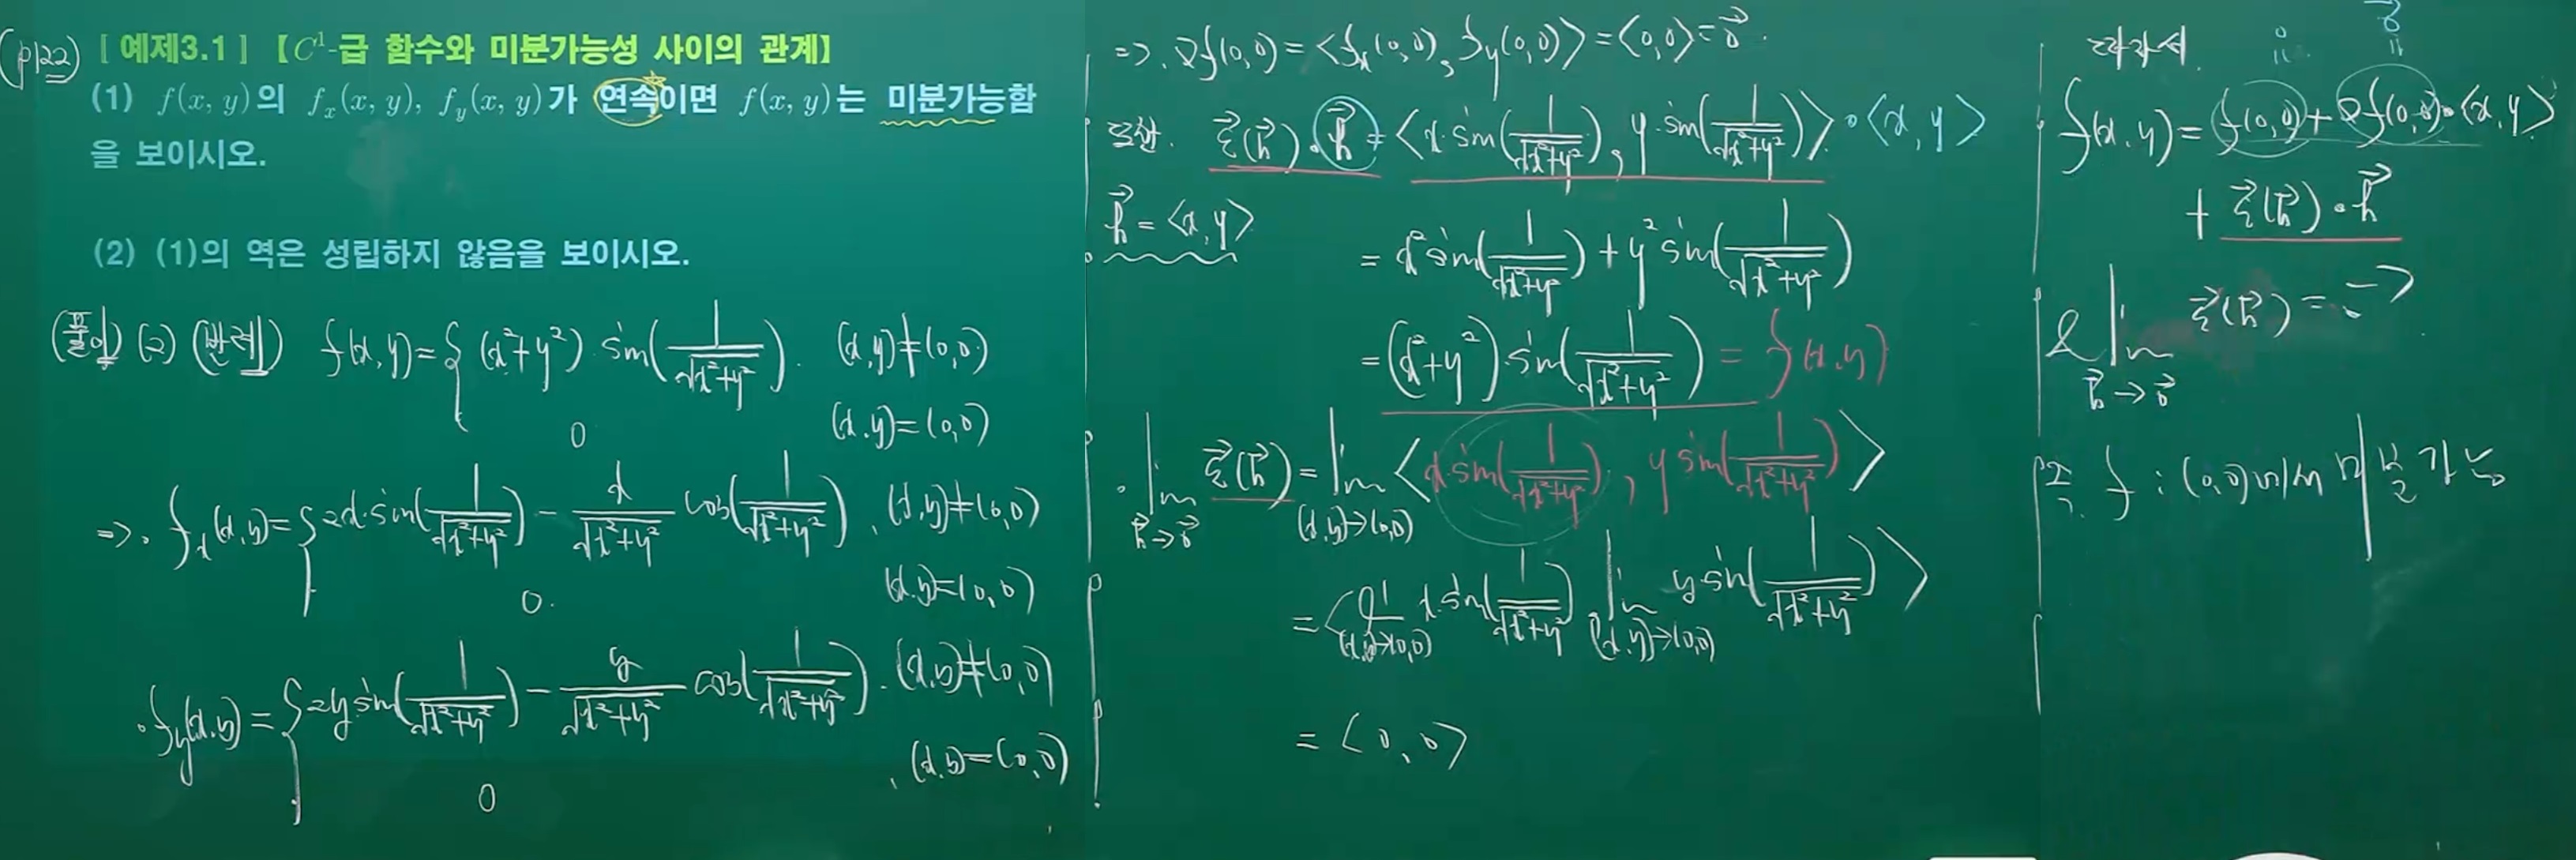 (p122) [ 예제3.1 ] 【 C¹-급 함수와 미분가능성 사이의 관계】
(1) f(x, y)의 f_x(x, y), f_y(x, y)가 연속이면 f(x, y)는 미분가능함
을 보이시오.
(2) (1)의 역은 성립하지 않음을 보이시오.
(풀이) (2) (반례) f(x,y) = { (x²+y²) sin(1/√(x²+y²)). (x,y)≠(0,0)
0 (x,y)=(0,0)
⇒. f_x(x,y) = { 2x·sin(1/√(x²+y²)) − x/√(x²+y²) cos(1/√(x²+y²)), (x,y)≠(0,0)
0. (x,y)=(0,0)
· f_y(x,y) = { 2y sin(1/√(x²+y²)) − y/√(x²+y²) cos(1/√(x²+y²)). (x,y)≠(0,0)
0 , (x,y)=(0,0)
⇒. ∇f(0,0) = <f_x(0,0), f_y(0,0)> = <0,0> = 0⃗.
또한. ε⃗(h⃗)·h⃗ = <x·sin(1/√(x²+y²)), y·sin(1/√(x²+y²))> · <x, y>
h⃗ = <x,y>
= x² sin(1/√(x²+y²)) + y² sin(1/√(x²+y²))
= (x²+y²)·sin(1/√(x²+y²)) = f(x,y)
· lim_{h⃗→0⃗} ε⃗(h⃗) = lim_{(x,y)→(0,0)} <x·sin(1/√(x²+y²)), y sin(1/√(x²+y²))>
= <lim_{(x,y)→(0,0)} x·sin(1/√(x²+y²)), lim_{(x,y)→(0,0)} y·sin(1/√(x²+y²))>
= <0, 0>
따라서.
0 0⃗
॥ ॥
f(x,y) = f(0,0) + ∇f(0,0)·<x,y>
+ ε⃗(h⃗)·h⃗
& lim_{h⃗→0⃗} ε⃗(h⃗) = 0⃗.
f : (0,0)에서 미분가능